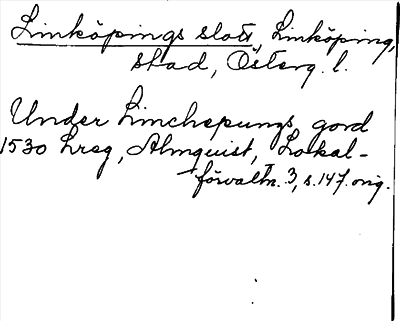 Linköpings slott, Linköping,
stad, Österg. l.
Under Limchepungs gord
1530 Lreg, Almquist, Lokal-
förvaltn. 3, s. 147. orig.